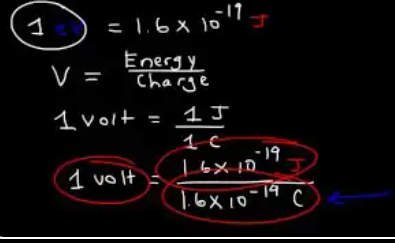 1 eV = 1.6 x 10^-19 J
V = Energy / Charge
1 volt = 1 J / 1 C
1 volt = 1.6 x 10^-19 J / 1.6 x 10^-19 C